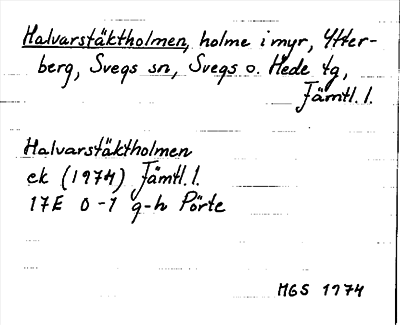 Halvarstäktholmen, holme i myr, Ytter-
berg, Svegs sn, Svegs o. Hede tg,
Jämtl. l.
Halvarstäktholmen
ek (1974) Jämtl. l.
17E 0-1 g-h Pörte
MGS 1974